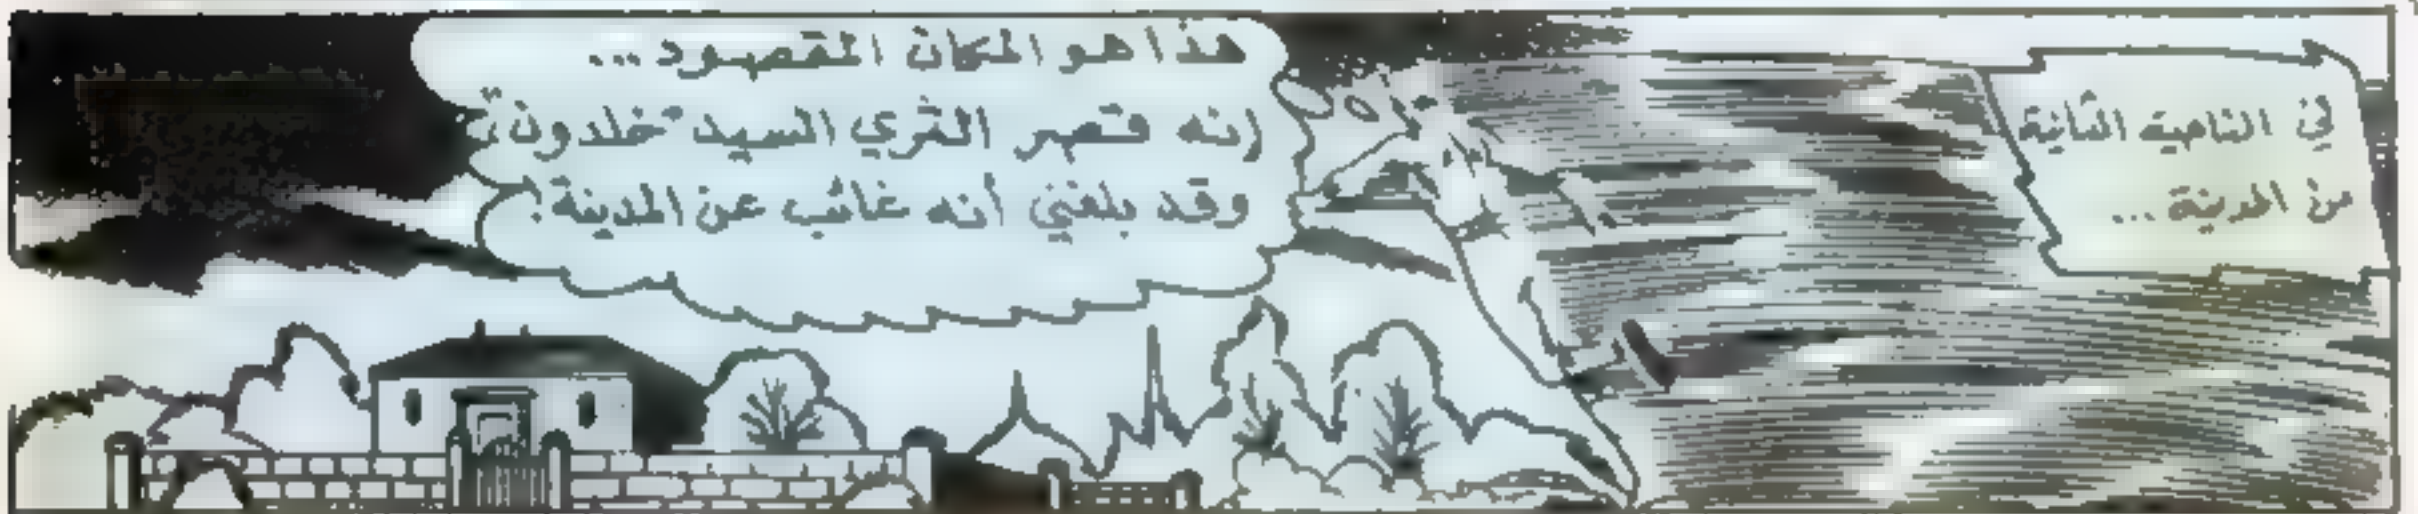 في الناحية الثانية
من المدينة ...
هذا هو المكان المقصود ...
إنه قصر الثري السيد "خلدون"،
وقد بلغني أنه غائب عن المدينة!